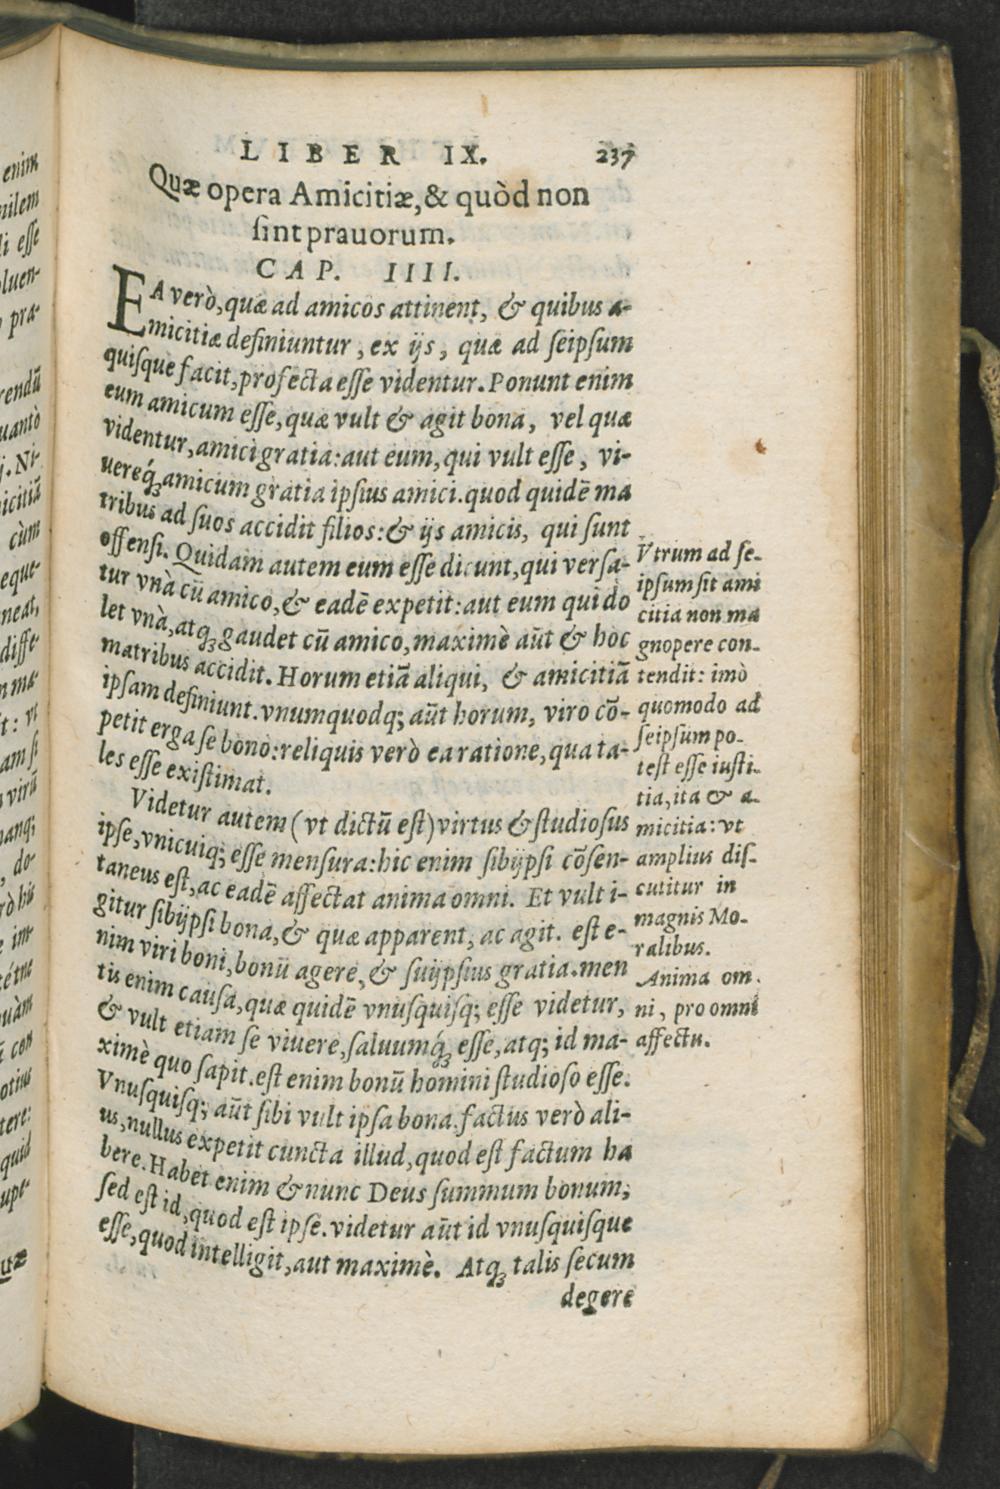 LIBER IX. 237
Quæ opera Amicitiæ, & quòd non
sint prauorum.
CAP. IIII.
EA verò, quæ ad amicos attinent, & quibus a-
micitiæ definiuntur, ex ijs, quæ ad seipsum
quisque facit, profecta esse videntur. Ponunt enim
eum amicum esse, quæ vult & agit bona, vel quæ
videntur, amici gratia: aut eum, qui vult esse, vi-
uereq́; amicum gratia ipsius amici. quod quidē ma
tribus ad suos accidit filios: & ijs amicis, qui sunt
offensi. Quidam autem eum esse dicunt, qui versa-
tur vnà cū amico, & eadē expetit: aut eum qui do
let vnà, atq; gaudet cū amico, maximè aūt & hoc
matribus accidit. Horum etiā aliqui, & amicitiā
ipsam definiunt. vnumquodq; aūt horum, viro cō-
petit erga se bono: reliquis verò ea ratione, qua ta-
les esse existimat.
Videtur autem (vt dictū est) virtus & studiosus
ipse, vnicuiq; esse mensura: hic enim sibijpsi cōsen-
taneus est, ac eadē affectat anima omni. Et vult i-
gitur sibijpsi bona, & quæ apparent, ac agit. est e-
nim viri boni, bonū agere, & suijpsius gratia. men
tis enim causa, quæ quidē vnusquisq; esse videtur,
& vult etiam se viuere, saluumq́; esse, atq; id ma-
ximè quo sapit. est enim bonū homini studioso esse.
Vnusquisq; aūt sibi vult ipsa bona. factus verò ali-
us, nullus expetit cuncta illud, quod est factum ha
bere. Habet enim & nunc Deus summum bonum;
sed est id, quod est ipse. videtur aūt id vnusquisque
esse, quod intelligit, aut maximè. Atq; talis secum
degere
Vtrum ad se-
ipsum sit ami
citia non ma
gnopere con-
tendit: imò
quomodo ad
seipsum po-
test esse iusti-
tia, ita & a-
micitia: vt
amplius dis-
cutitur in
magnis Mo-
ralibus.
Anima om-
ni, pro omni
affectu.
enim
milem
li esse
luen-
pra-
rendū
uantò
j. Ni-
icitiā
cùm
eque-
neat,
diffe-
t: vt
am si
virā
nanq;
, do-
rò his
uàm
con
otius
tere:
quid
upe-